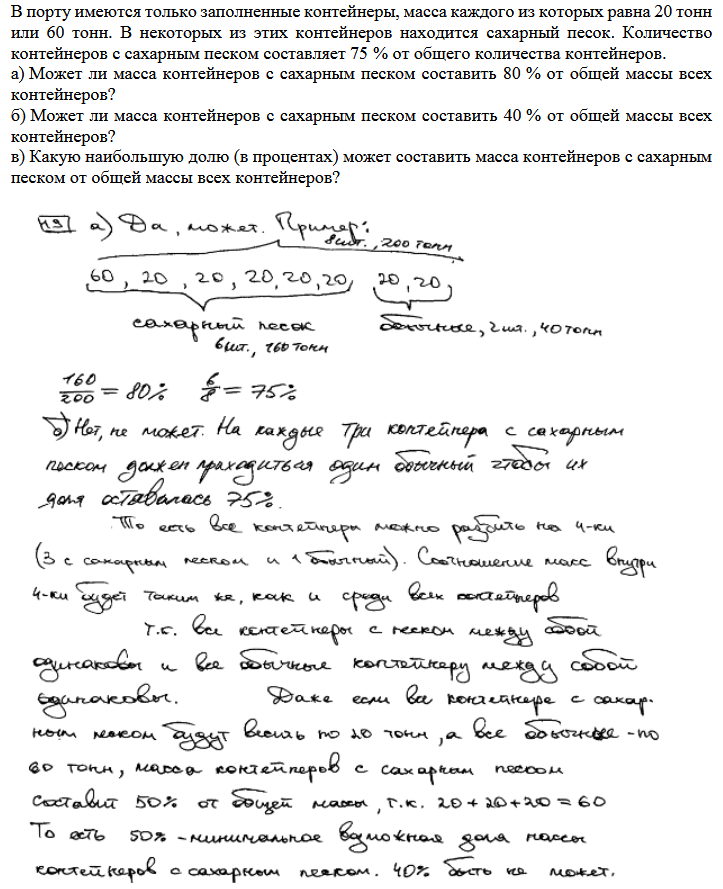 В порту имеются только заполненные контейнеры, масса каждого из которых равна 20 тонн
или 60 тонн. В некоторых из этих контейнеров находится сахарный песок. Количество
контейнеров с сахарным песком составляет 75 % от общего количества контейнеров.
а) Может ли масса контейнеров с сахарным песком составить 80 % от общей массы всех
контейнеров?
б) Может ли масса контейнеров с сахарным песком составить 40 % от общей массы всех
контейнеров?
в) Какую наибольшую долю (в процентах) может составить масса контейнеров с сахарным
песком от общей массы всех контейнеров?
19 а) Да, может. Пример:
8шт., 200 тонн
60, 20, 20, 20, 20, 20, 20, 20,
сахарный песок обычные, 2 шт., 40 тонн
6шт., 160 тонн
160/200 = 80% 6/8 = 75%
б) Нет, не может. На каждые три контейнера с сахарным
песком должен приходиться один обычный чтобы их
доля оставалась 75%.
То есть все контейнеры можно разбить на 4-ки
(3 с сахарным песком и 1 обычный). Соотношение масс внутри
4-ки будет таким же, как и среди всех контейнеров
т.к. все контейнеры с песком между собой
одинаковы и все обычные контейнеру между собой
одинаковы. Даже если все контейнере с сахар-
ным песком будут весить по 20 тонн, а все обычные - по
60 тонн, масса контейнеров с сахарным песком
составит 50% от общей массы, т.к. 20 + 20 + 20 = 60
То есть 50% - минимальное возможная доля массы
контейнеров с сахарным песком. 40% быть не может.